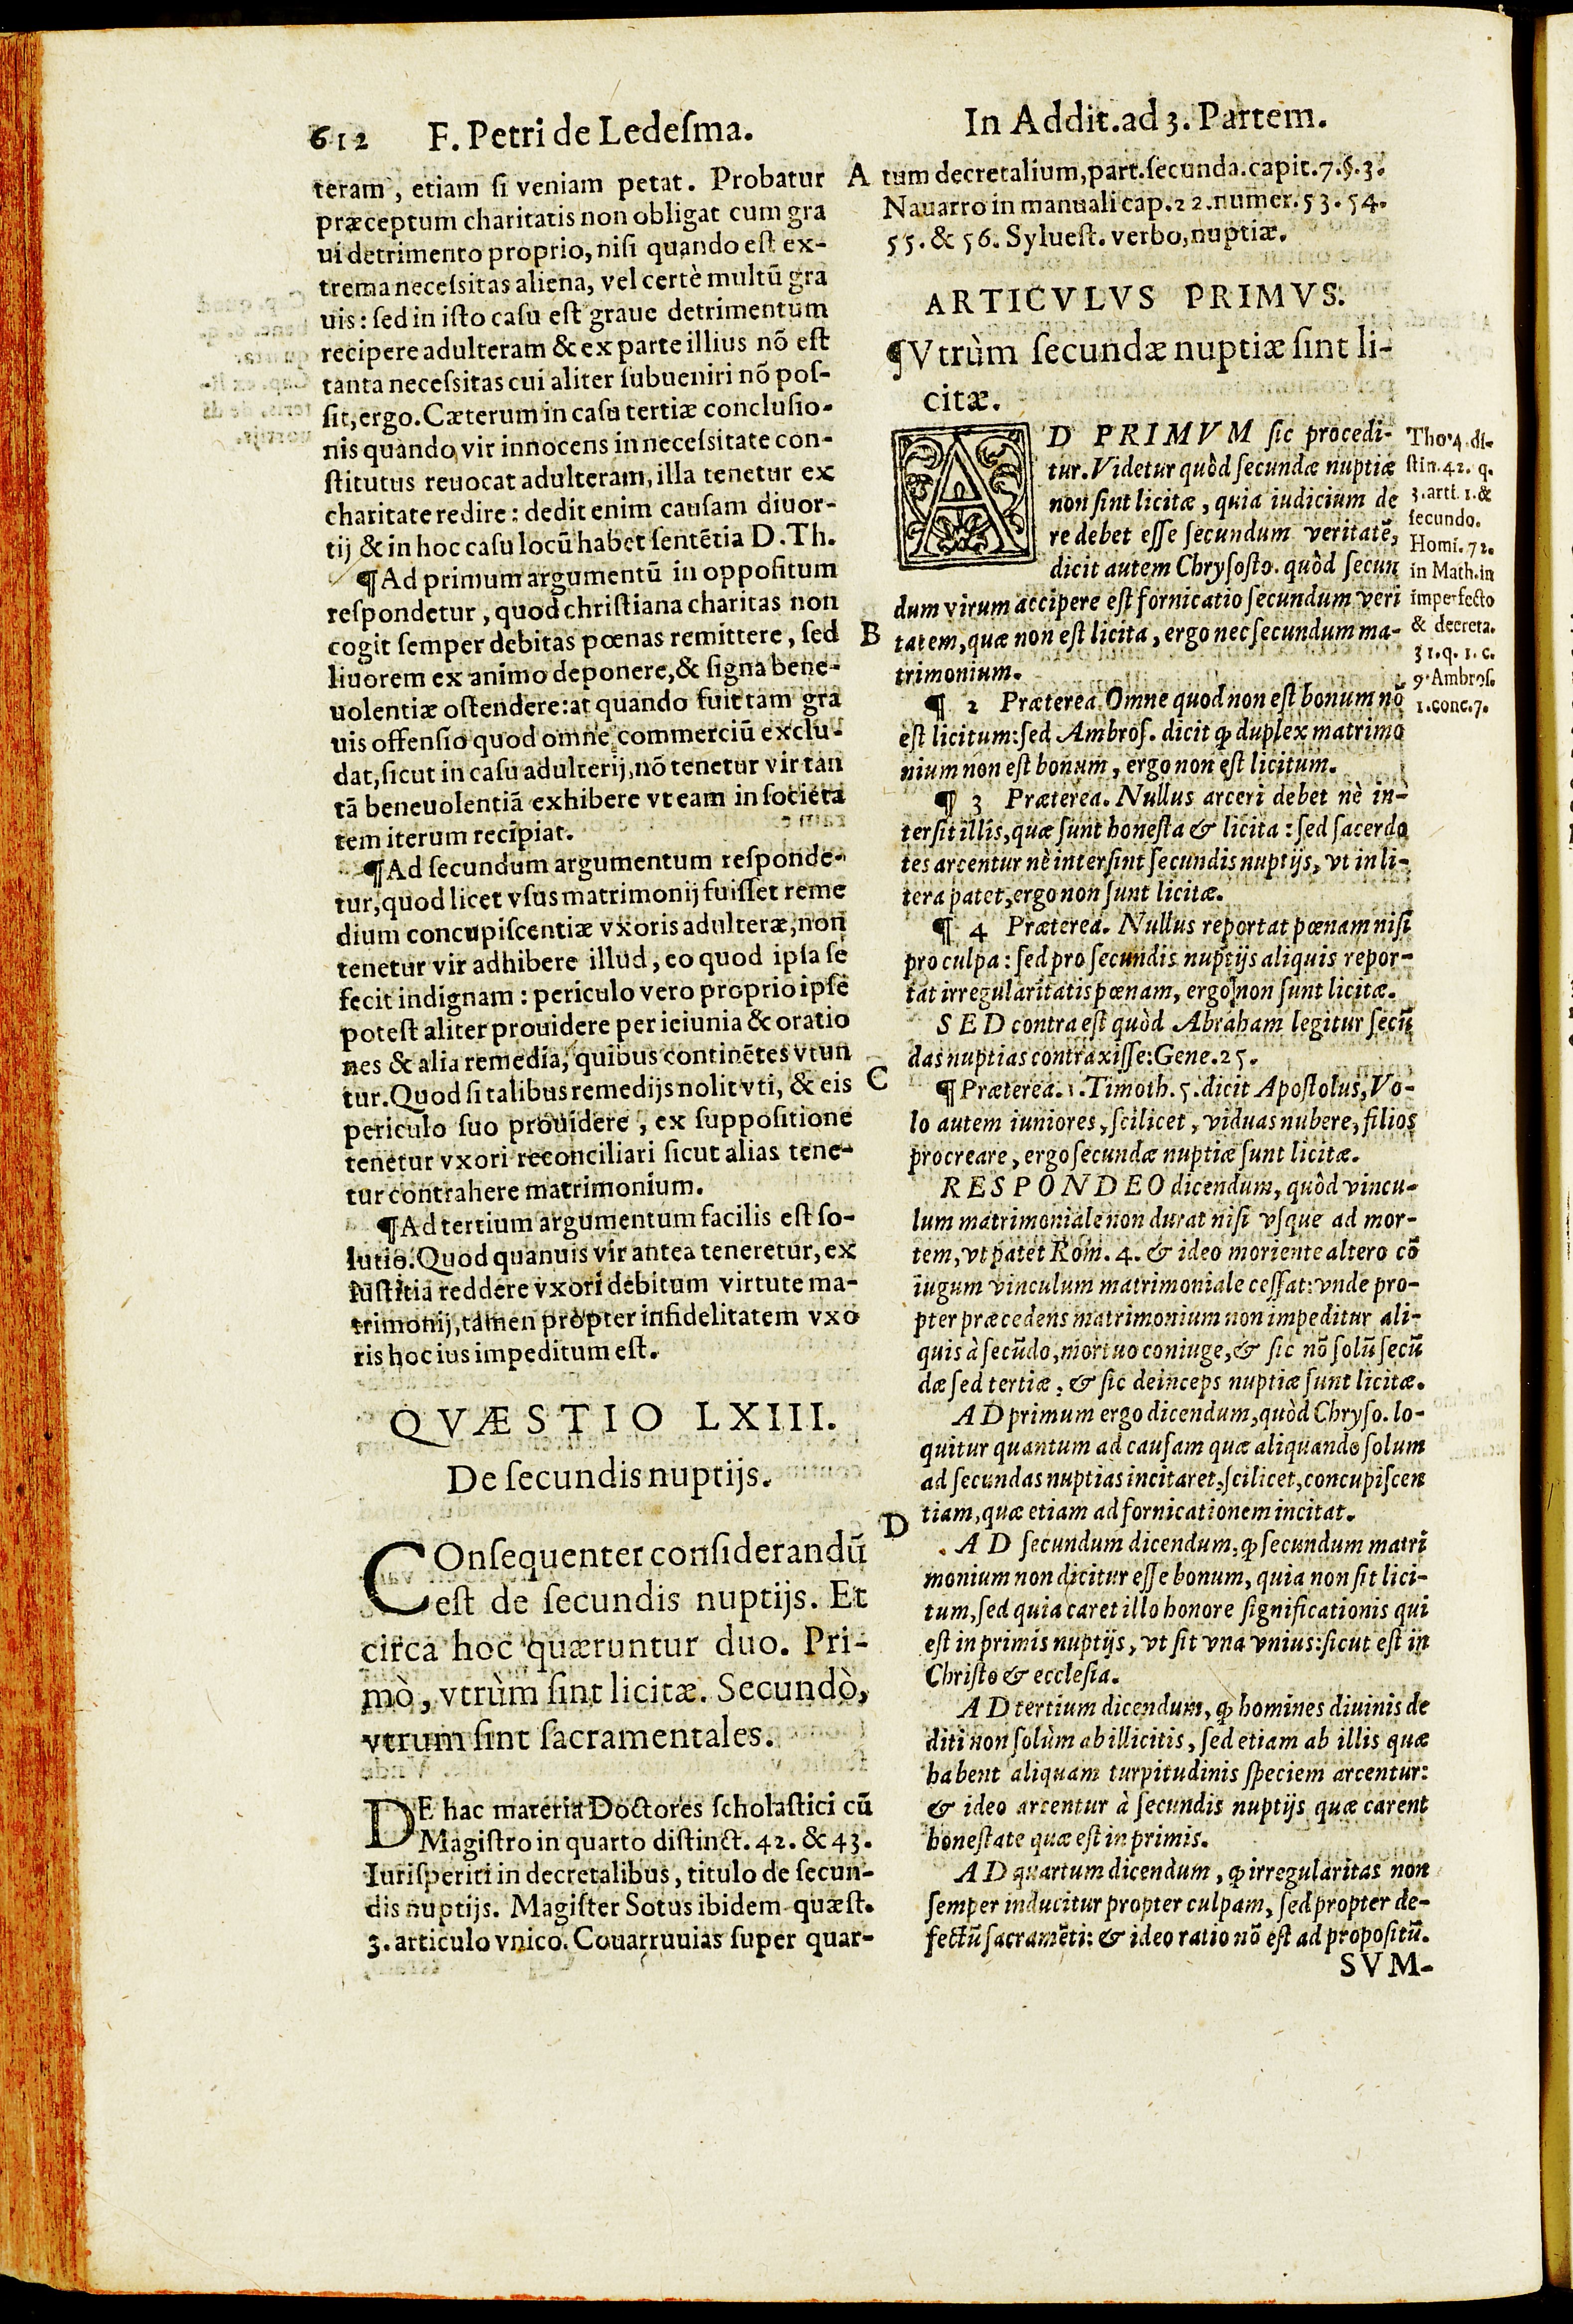 612 F. Petri de Ledeſma.
teram, etiam ſi veniam petat. Probatur
præceptum charitatis non obligat cum gra
ui detrimento proprio, niſi quando eſt ex-
trema neceſsitas aliena, vel certè multū gra
uis: ſed in iſto caſu eſt graue detrimentum
recipere adulteram & ex parte illius nō eſt
tanta neceſsitas cui aliter ſubueniri nō poſ-
ſit, ergo. Cæterum in caſu tertiæ concluſio-
nis quando vir innocens in neceſsitate con-
ſtitutus reuocat adulteram, illa tenetur ex
charitate redire: dedit enim cauſam diuor-
tij & in hoc caſu locū habet ſentētia D. Th.
¶Ad primum argumentū in oppoſitum
reſpondetur, quod chriſtiana charitas non
cogit ſemper debitas pœnas remittere, ſed
liuorem ex animo deponere, & ſigna bene-
uolentiæ oſtendere: at quando fuit tam gra
uis offenſio quod omne commerciū exclu-
dat, ſicut in caſu adulterij, nō tenetur vir tan
tā beneuolentiā exhibere vt eam in ſocieta
tem iterum recipiat.
¶Ad ſecundum argumentum reſponde-
tur, quod licet vſus matrimonij fuiſſet reme
dium concupiſcentiæ vxoris adulteræ, non
tenetur vir adhibere illud, eo quod ipſa ſe
fecit indignam: periculo vero proprio ipſe
poteſt aliter prouidere per ieiunia & oratio
nes & alia remedia, quibus continētes vtun
tur. Quod ſi talibus remedijs nolit vti, & eis
periculo ſuo prouidere, ex ſuppoſitione
tenetur vxori reconciliari ſicut alias tene-
tur contrahere matrimonium.
¶Ad tertium argumentum facilis eſt ſo-
lutio. Quod quanuis vir antea teneretur, ex
iuſtitia reddere vxori debitum virtute ma-
trimonij, tamen propter infidelitatem vxo
ris hoc ius impeditum eſt.
QVÆSTIO LXIII.
De ſecundis nuptijs.
COnſequenter conſiderandū
eſt de ſecundis nuptijs. Et
circa hoc quæruntur duo. Pri-
mò, vtrùm ſint licitæ. Secundò,
vtrum ſint ſacramentales.
DE hac materia Doctores ſcholaſtici cū
Magiſtro in quarto diſtinct. 42. & 43.
Iuriſperiti in decretalibus, titulo de ſecun-
dis nuptijs. Magiſter Sotus ibidem quæſt.
3. articulo vnico. Couarruuias ſuper quar-
In Addit. ad 3. Partem.
A tum decretalium, part. ſecunda. capit. 7. §. 3.
Nauarro in manuali cap. 22. numer. 53. 54.
55. & 56. Sylueſt. verbo, nuptiæ.
ARTICVLVS PRIMVS.
¶Vtrùm ſecundæ nuptiæ ſint li-
citæ.
AD PRIMVM ſic procedi-
tur. Videtur quòd ſecundæ nuptiæ
non ſint licitæ, quia iudicium de
re debet eſſe ſecundum veritatē,
dicit autem Chryſoſto. quòd ſecun
dum virum accipere eſt fornicatio ſecundum veri
B tatem, quæ non eſt licita, ergo nec ſecundum ma-
trimonium.
¶ 2 Præterea. Omne quod non eſt bonum nō
eſt licitum: ſed Ambroſ. dicit ꝙ duplex matrimo
nium non eſt bonum, ergo non eſt licitum.
¶ 3 Præterea. Nullus arceri debet nè in-
terſit illis, quæ ſunt honeſta & licita: ſed ſacerdo
tes arcentur nè interſint ſecundis nuptijs, vt in li-
tera patet, ergo non ſunt licitæ.
¶ 4 Præterea. Nullus reportat pœnam niſi
pro culpa: ſed pro ſecundis nuptijs aliquis repor-
tat irregularitatis pœnam, ergo non ſunt licitæ.
SED contra eſt quòd Abraham legitur ſecū
das nuptias contraxiſſe: Gene. 25.
C ¶Præterea. 1. Timoth. 5. dicit Apoſtolus, Vo-
lo autem iuniores, ſcilicet, viduas nubere, filios
procreare, ergo ſecundæ nuptiæ ſunt licitæ.
RESPONDEO dicendum, quòd vincu-
lum matrimoniale non durat niſi vſque ad mor-
tem, vt patet Rom. 4. & ideo moriente altero cō
iugum vinculum matrimoniale ceſſat: vnde pro-
pter præcedens matrimonium non impeditur ali-
quis à ſecūdo, mortuo coniuge, & ſic nō ſolū ſecū
dæ ſed tertiæ, & ſic deinceps nuptiæ ſunt licitæ.
AD primum ergo dicendum, quòd Chryſo. lo-
quitur quantum ad cauſam quæ aliquando ſolum
ad ſecundas nuptias incitaret, ſcilicet, concupiſcen
D tiam, quæ etiam ad fornicationem incitat.
AD ſecundum dicendum, ꝙ ſecundum matri
monium non dicitur eſſe bonum, quia non ſit lici-
tum, ſed quia caret illo honore ſignificationis qui
eſt in primis nuptijs, vt ſit vna vnius: ſicut eſt in
Chriſto & eccleſia.
AD tertium dicendum, ꝙ homines diuinis de
diti non ſolùm ab illicitis, ſed etiam ab illis quæ
habent aliquam turpitudinis ſpeciem arcentur:
& ideo arcentur à ſecundis nuptijs quæ carent
honeſtate quæ eſt in primis.
AD quartum dicendum, ꝙ irregularitas non
ſemper inducitur propter culpam, ſed propter de-
fectū ſacramēti: & ideo ratio nō eſt ad propoſitū.
SVM-
Tho. 4. di-
ſtin. 42. q.
3. arti. 1. &
ſecundo.
Homi. 72.
in Math. in
imperfecto
& decreta.
31. q. 1. c.
9. Ambroſ.
1. conc. 7.